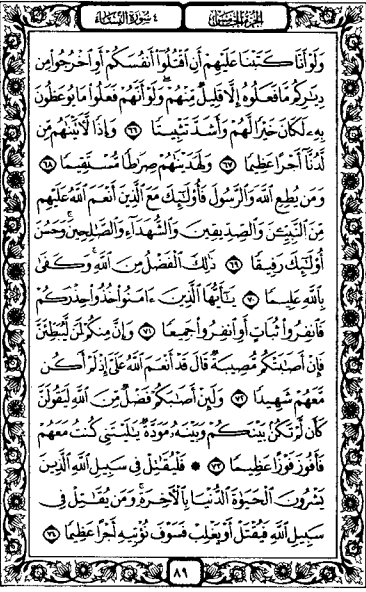 الجزء الخامس ٤ سورة النساء
وَلَوْ أَنَّا كَتَبْنَا عَلَيْهِمْ أَنِ اقْتُلُوٓا أَنفُسَكُمْ أَوِ اخْرُجُوا مِن
دِيَٰرِكُم مَّا فَعَلُوهُ إِلَّا قَلِيلٌ مِّنْهُمْ ۖ وَلَوْ أَنَّهُمْ فَعَلُوا مَا يُوعَظُونَ
بِهِۦ لَكَانَ خَيْرًا لَّهُمْ وَأَشَدَّ تَثْبِيتًا ٦٦ وَإِذًا لَّآتَيْنَٰهُم مِّن
لَّدُنَّآ أَجْرًا عَظِيمًا ٦٧ وَلَهَدَيْنَٰهُمْ صِرَٰطًا مُّسْتَقِيمًا ٦٨
وَمَن يُطِعِ اللَّهَ وَالرَّسُولَ فَأُولَٰٓئِكَ مَعَ الَّذِينَ أَنْعَمَ اللَّهُ عَلَيْهِم
مِّنَ النَّبِيِّـۧنَ وَالصِّدِّيقِينَ وَالشُّهَدَآءِ وَالصَّٰلِحِينَ ۚ وَحَسُنَ
أُولَٰٓئِكَ رَفِيقًا ٦٩ ذَٰلِكَ الْفَضْلُ مِنَ اللَّهِ ۚ وَكَفَىٰ
بِاللَّهِ عَلِيمًا ٧٠ يَٰٓأَيُّهَا الَّذِينَ ءَامَنُوا خُذُوا حِذْرَكُمْ
فَانفِرُوا ثُبَاتٍ أَوِ انفِرُوا جَمِيعًا ٧١ وَإِنَّ مِنكُمْ لَمَن لَّيُبَطِّئَنَّ
فَإِنْ أَصَٰبَتْكُم مُّصِيبَةٌ قَالَ قَدْ أَنْعَمَ اللَّهُ عَلَيَّ إِذْ لَمْ أَكُن
مَّعَهُمْ شَهِيدًا ٧٢ وَلَئِنْ أَصَٰبَكُمْ فَضْلٌ مِّنَ اللَّهِ لَيَقُولَنَّ
كَأَن لَّمْ تَكُنۢ بَيْنَكُمْ وَبَيْنَهُۥ مَوَدَّةٌ يَٰلَيْتَنِي كُنتُ مَعَهُمْ
فَأَفُوزَ فَوْزًا عَظِيمًا ٧٣ ۞ فَلْيُقَٰتِلْ فِي سَبِيلِ اللَّهِ الَّذِينَ
يَشْرُونَ الْحَيَوٰةَ الدُّنْيَا بِالْآخِرَةِ ۚ وَمَن يُقَٰتِلْ فِي
سَبِيلِ اللَّهِ فَيُقْتَلْ أَوْ يَغْلِبْ فَسَوْفَ نُؤْتِيهِ أَجْرًا عَظِيمًا ٧٤
٨٩